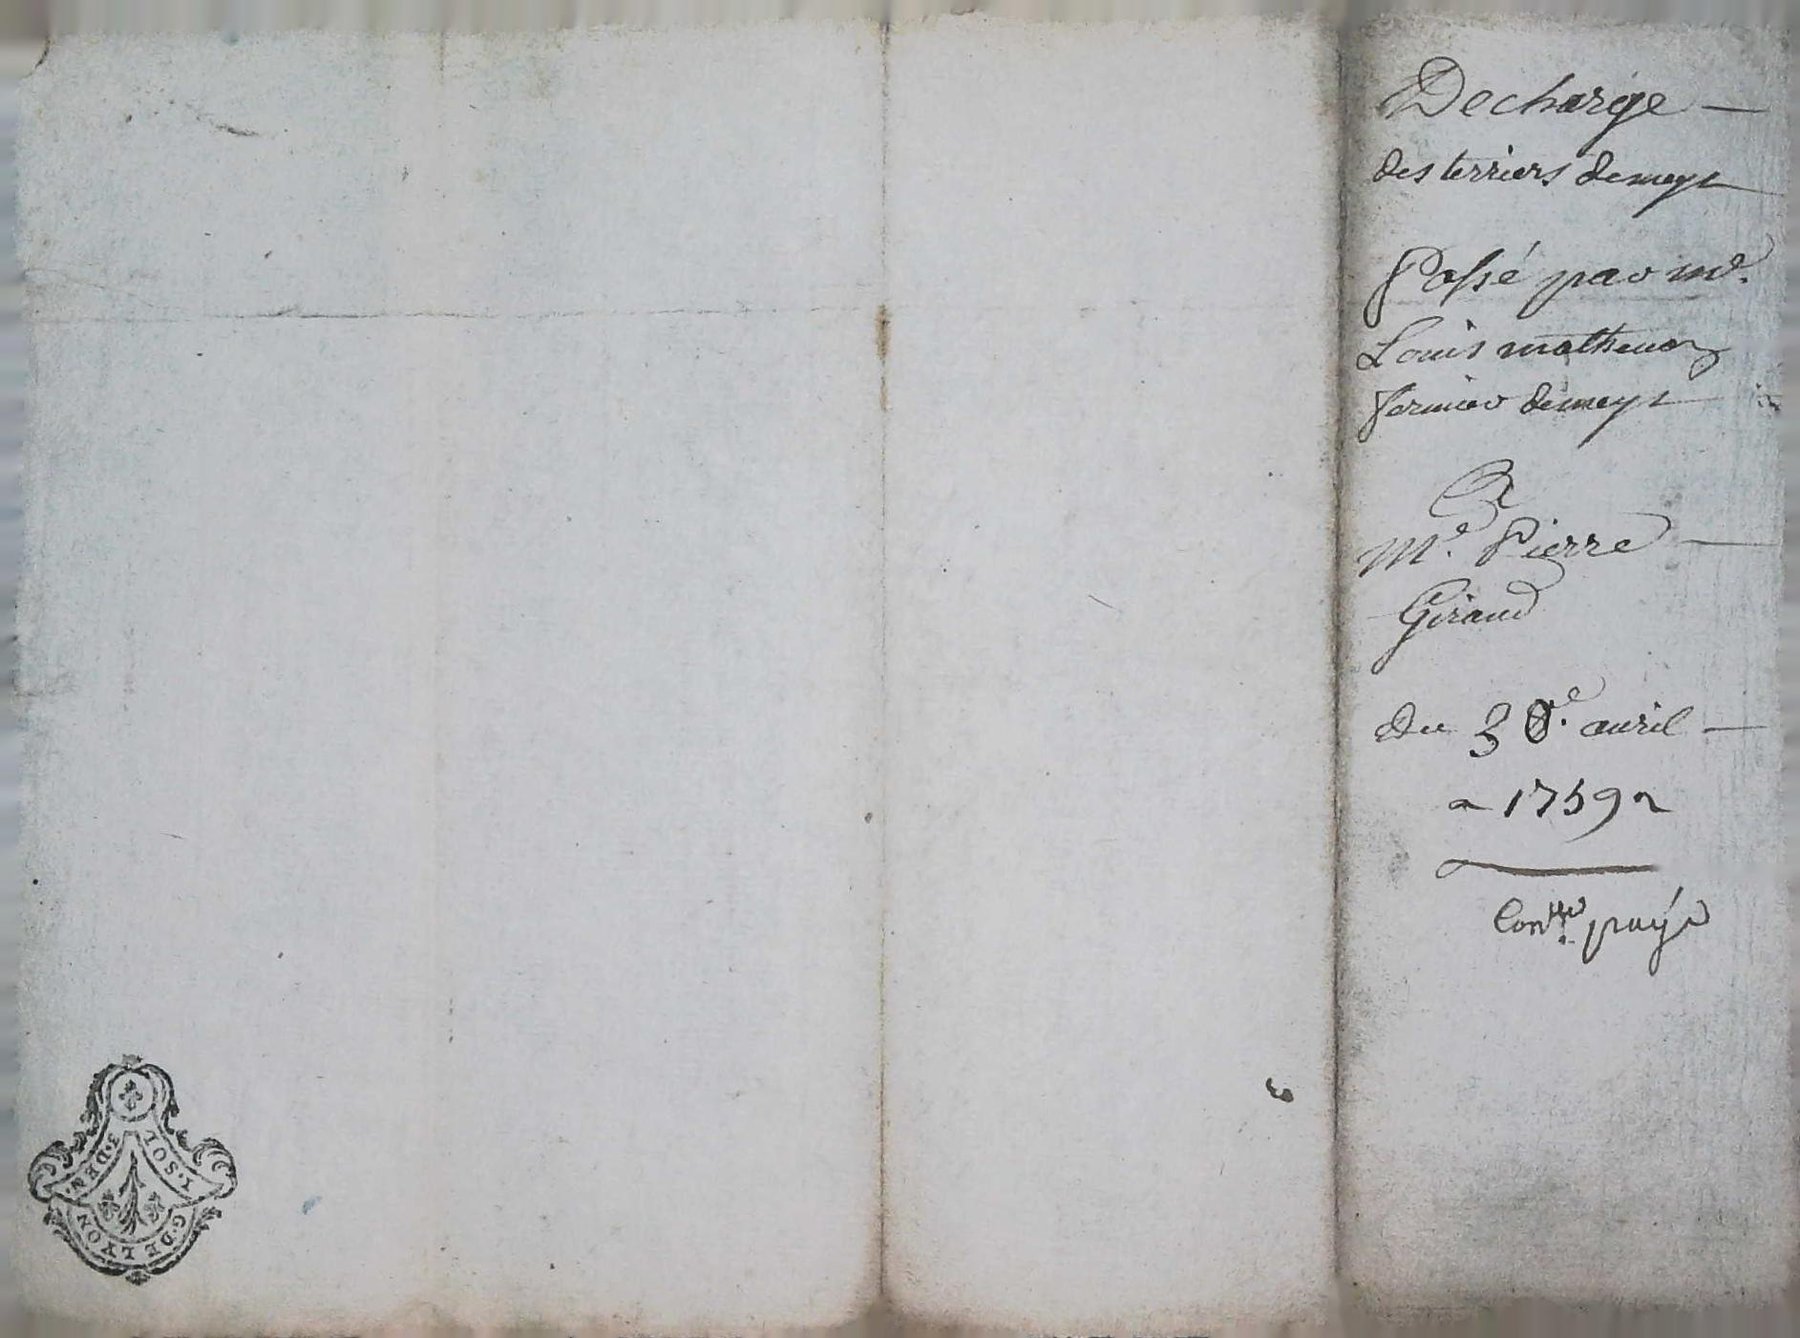 Decharge
des terriers de meys
Passé par me.
Louis mathenon
fermier de meys
A
Me. Pierre
Giraud
Du 30e. avril
1759
Conlle payé
1.SOL.
3.DEN.
G.DE LYON